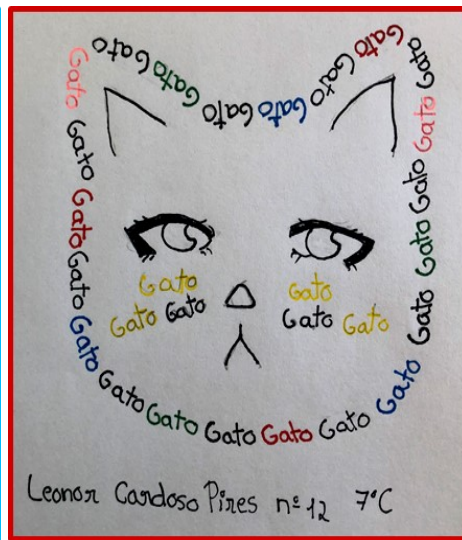 Gato Gato Gato Gato Gato Gato
Gato Gato Gato Gato Gato Gato
Gato Gato Gato Gato Gato Gato
Gato Gato Gato Gato
Gato
Gato Gato
Gato
Gato Gato
Leonor Cardoso Pires nº 12 7ºC